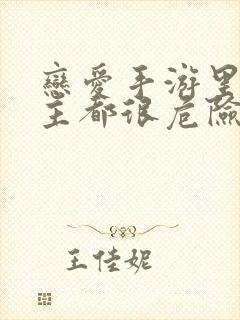 戀愛手游里
主都很危險
王佳妮